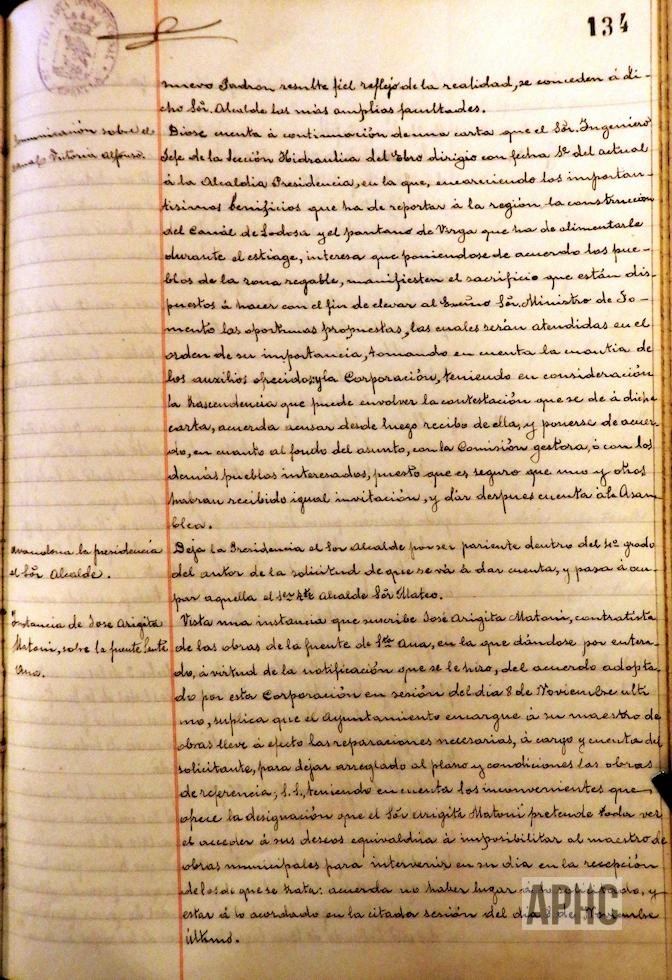 134
nuevo Padron resulte fiel reflejo de la realidad, se conceden á di-
cho Sor. Alcalde las más amplias facultades.
Comunicación sobre el
Canal Victoria Alfonso.
Diose cuenta á continuación de una carta que el Sor. Ingeniero
Jefe de la Sección Hidraulica del Ebro dirigio con fecha 1º del actual
á la Alcaldia Presidencia, en la que, encareciendo los importan-
tisimos benificios que ha de reportar á la región la construcción
del Canal de Lodosa y el pantano de Yirga que ha de alimentarle
durante el estiage, interesa que poniendose de acuerdo los pue-
blos de la zona regable, manifiesten el sacrificio que están dis-
puestos á hacer con el fin de elevar al Excmo Sor. Ministro de Fo-
mento las oportunas propuestas, las cuales serán atendidas en el
orden de su importancia, tomando en cuenta la cuantia de
los auxilios ofrecidos; y la Corporación, teniendo en consideración
la trascendencia que puede envolver la contestación que se dé á dicha
carta, acuerda acusar desde luego recibo de ella, y ponerse de acuer-
do, en cuanto al fondo del asunto, con la Comisión gestora, ó con los
demás pueblos interesados, puesto que es seguro que uno y otros
habran recibido igual invitación, y dar despues cuenta á la Asam-
blea.
Avandona la presidencia
el Sor Alcalde.
Deja la Presidencia el Sor Alcalde por ser pariente dentro del 4º grado
del autor de la solicitud de que se vá á dar cuenta, y pasa á ocu-
par aquella el 1er Tte Alcalde Sor Mateo.
Instancia de José Arigita
Matoni, sobre la fuente Santa
Ana.
Vista una instancia que suscribe José Arigita Matoni, contratista
de las obras de la fuente de Sta Ana, en la que dándose por entera-
do, á virtud de la notificación que se le hizo, del acuerdo adopta-
do por esta Corporación en sesión del dia 8 de Noviembre ulti
mo, suplica que el Ayuntamiento encargue á su maestro de
obras lleve á efecto las reparaciones necesarias, á cargo y cuenta del
solicitante, para dejar arreglado al plano y condiciones las obras
de referencia; S.S., teniendo en cuenta los inconvenientes que
ofrece la designación que el Sor Arigita Matoni pretende toda vez
el acceder á sus deseos equivaldria á imposibilitar al maestro de
obras municipales para intervenir en su dia en la recepción
de los de que se trata: acuerda no haber lugar á lo solicitado, y
estar á lo acordado en la citada sesión del dia 8 de Noviembre
último.
APHC